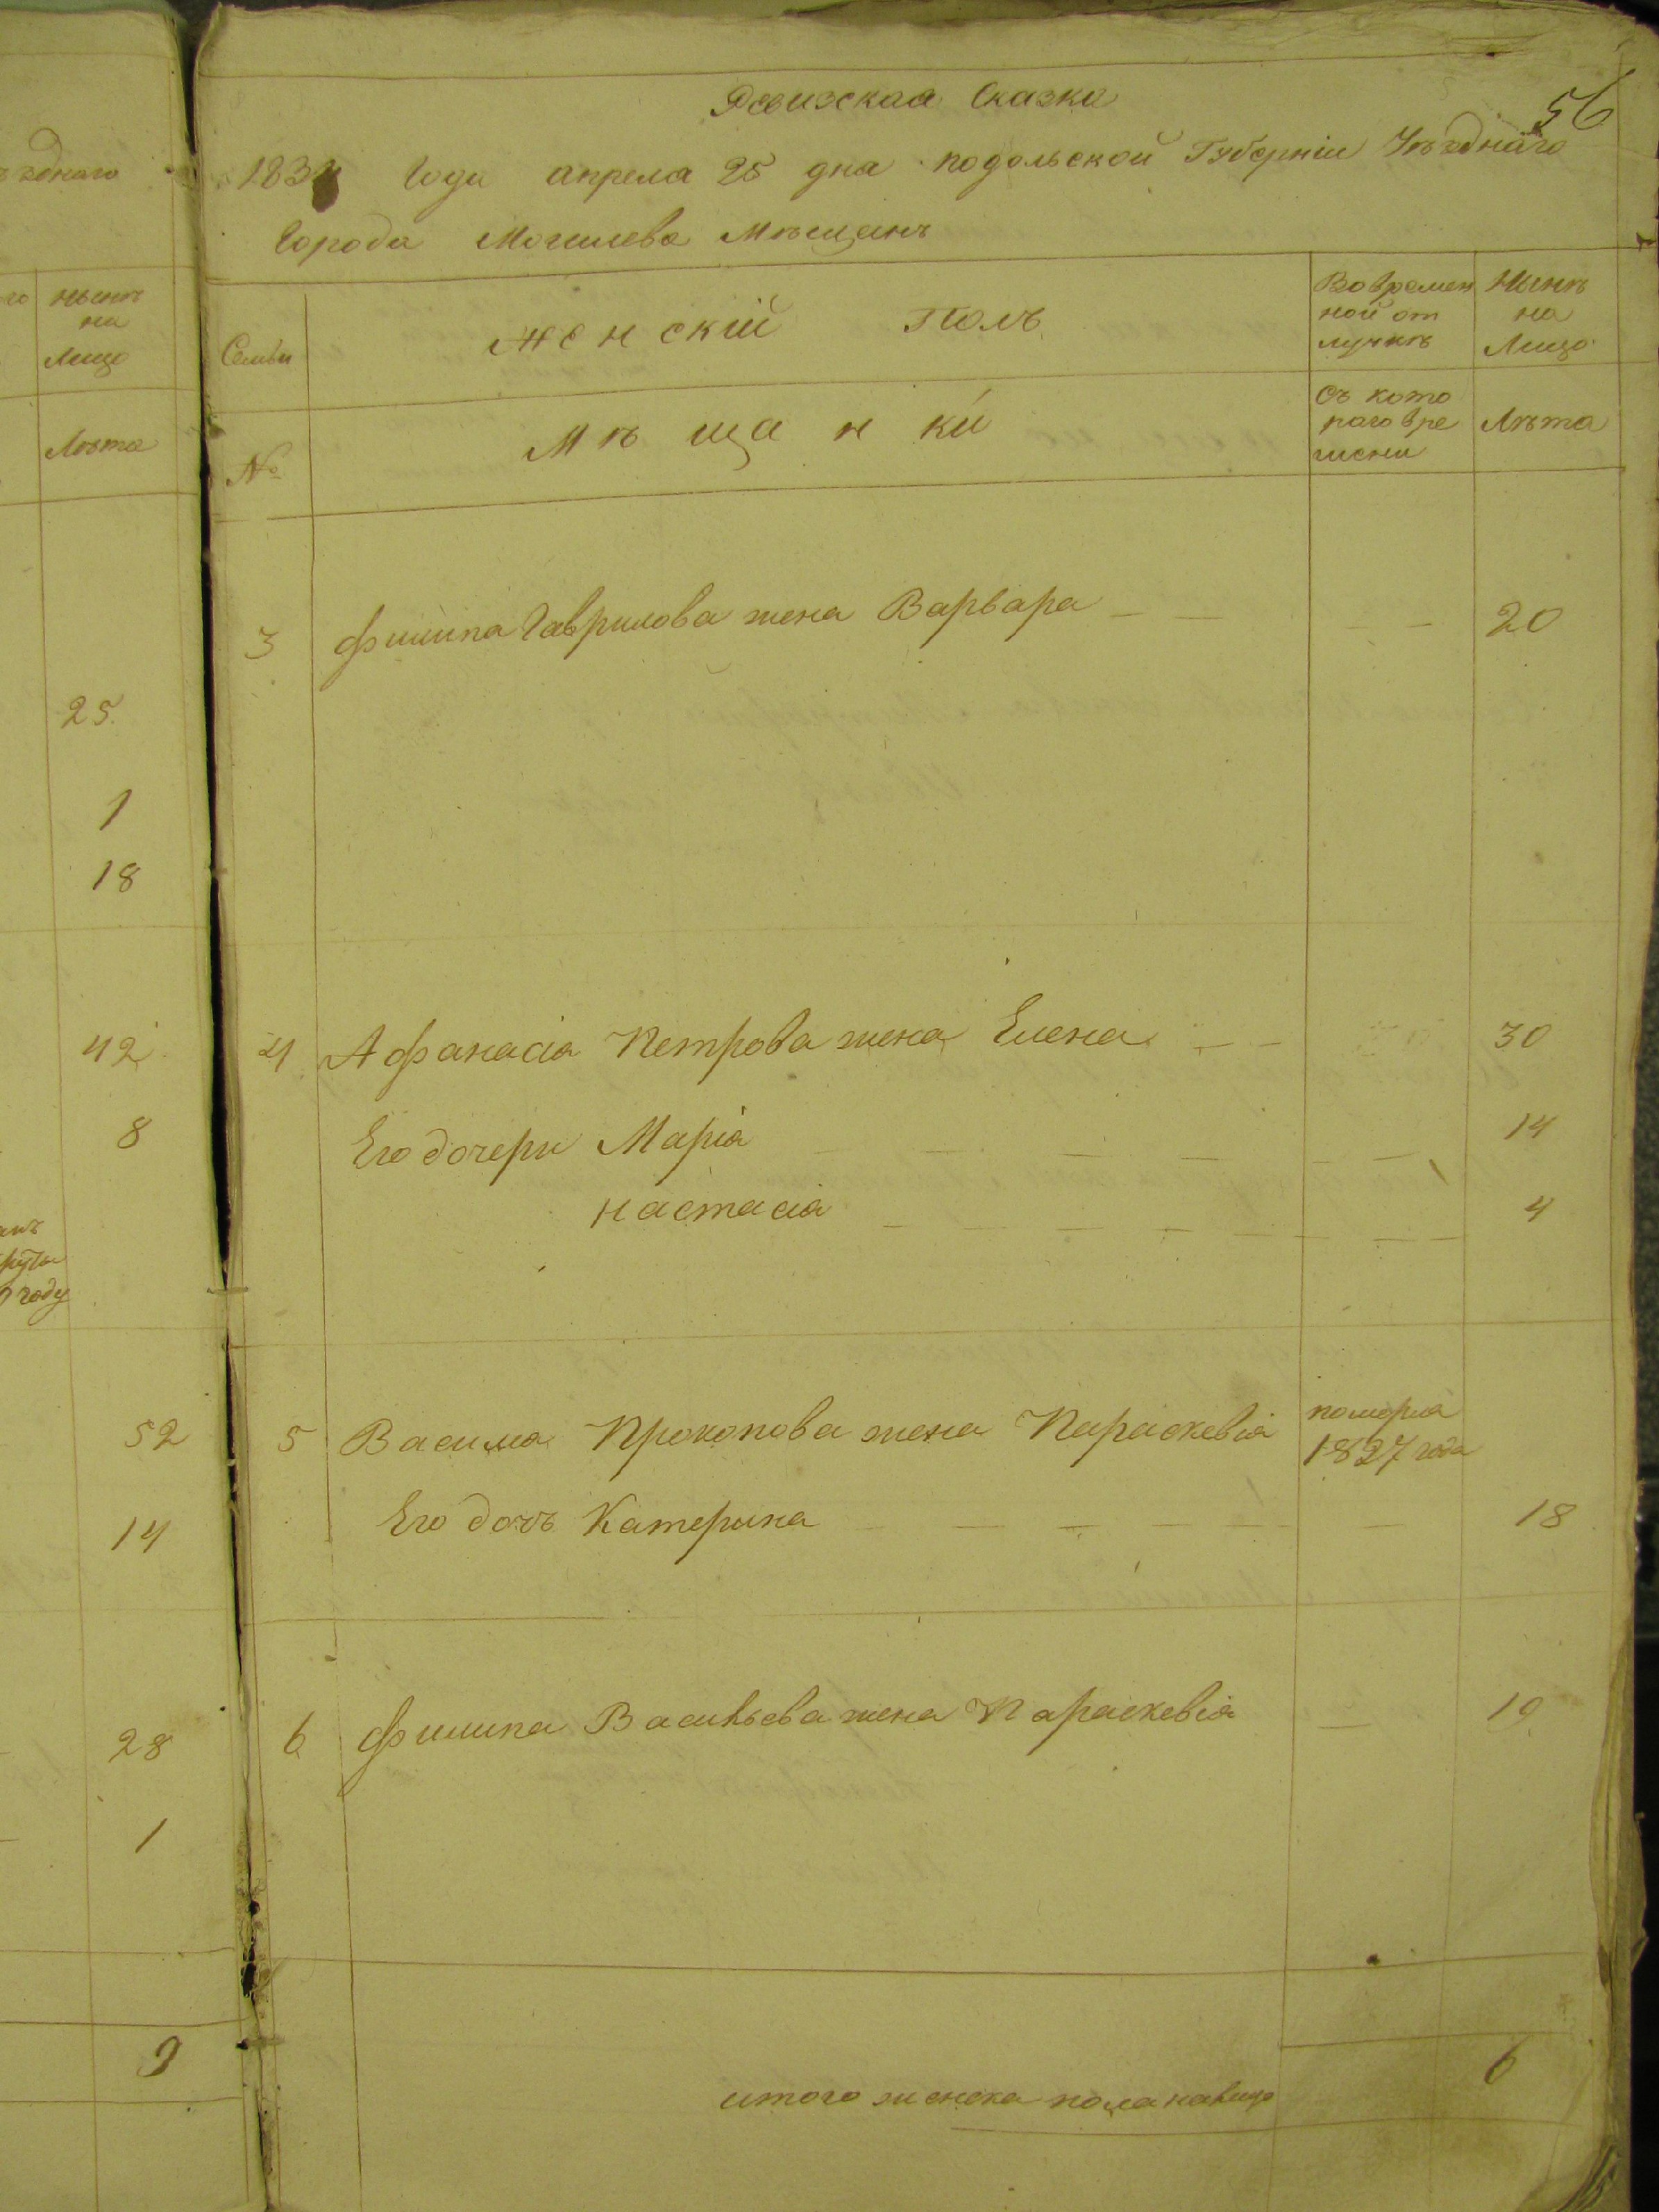 ъзднаго
го
нынѣ
на
Лицо
Лѣта
25.
1
18
42
8
году
52
14
28
1
9
56
Ревизская Сказка
183 Года апреля 25 дня подольской Губерніи Уѣзднаго
Города Могилева Мѣщанъ
Семьи
женскій Полъ
Во времен
ной от
лучкѣ
Нынѣ
на
Лицо
№
Мѣщанки
Съ кото
раго вре
мени
Лѣта
3 Филипа Гаврилова жена Варвара — — — — 20
4 Афанасія Петрова жена Елена — — 30
Его дочери Марія — — — — — — 14
Настасія — — — — — — — 4
5 Василия Прокопова жена Параскевія померла
1827 года
Его дочь Катерина — — — — — — 18
6 Филипа Васильева жена Параскевія — 19.
итого женска пола налицо 6